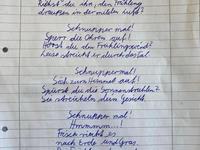 Riechst du ihn, den Frühling
draußen in der milden Luft?
Schnupper mal!
Sperr die Ohren auf!
Hörst du den Frühlingswind?
Leise streicht er durchs Tal.
Schnupper mal!
Sieh zum Himmel auf!
Spürst du die Sonnenstrahlen?
Sie streicheln dein Gesicht.
Schnupper mal!
Hmmmm...!
Frisch riecht es
nach Erde und Gras.